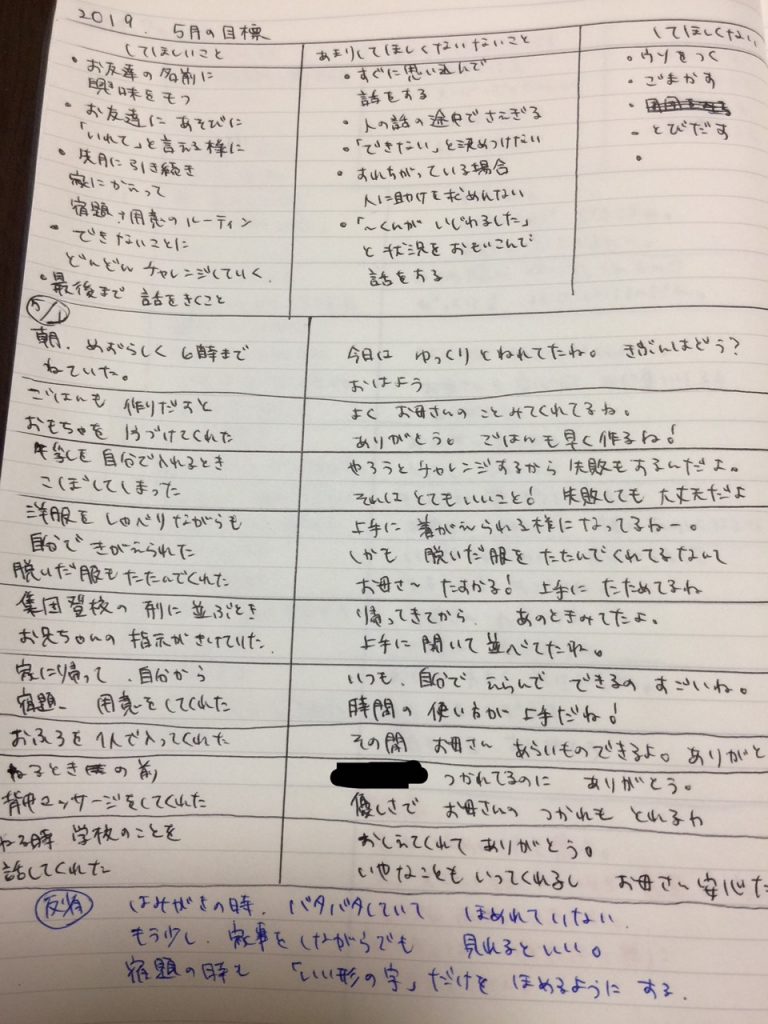 2019. 5月の目標
してほしいこと
・お友達の名前に
興味をもつ
・お友達に あそびに
「いれて」と言える様に
・先月に引き続き
家にかえって
宿題、用意のルーティン
・できないことに
どんどん チャレンジしていく。
・最後まで 話をきくこと
あまりしてほしくないないこと
・すぐに思い込んで
話をする
・人の話の途中でさえぎる
・「できない」と決めつけない
・すれちがっている場合
人に助けを求めんない
・「〜くんが いじわるした」
と 状況を おもいこんで
話をする
してほしくない
・ウソをつく
・ごまかす
・とびだす
・
5/1
朝、めずらしく 6時まで
ねていた。
今日は ゆっくりとねれてたね。 きぶんはどう?
おはよう
ごはんも 作りだすと
おもちゃを 片づけてくれた
よく お母さんのこと みてくれてるね。
ありがとう。 ごはんも早く作るね!
自分で入れるとき
こぼしてしまった
やろうとチャレンジするから 失敗もするんだよ。
それは とてもいいこと! 失敗しても 大丈夫だよ
洋服を しゃべりながらも
自分で きがえられた
脱いだ服もたたんでくれた
上手に 着がえられる様に なってるねー。
しかも 脱いだ服を たたんでくれてるなんて
お母さ〜 たすかる! 上手に たためてるね
集団登校の 列に並ぶとき
お兄ちゃんの 指示がきけていた。
帰ってきてから あのときみてたよ。
上手に 聞いて 並べてたね。
家に帰って、自分から
宿題、用意をしてくれた
いつも、自分で えらんで できるの すごいね。
時間の 使い方が 上手だね!
おふろを 1人で入ってくれた
その間 お母さん あらいものできるよ。 ありがと
ねるとき の 前
背中マッサージをしてくれた
つかれてるのに ありがとう。
優しさで お母さんの つかれも とれるわ
ねる時 学校のことを
話してくれた
おしえてくれて ありがとう。
いやなことも いってくれるし お母さん 安心た
反省
はみがきの時、バタバタしていて ほめれていない。
もう少し、家事を しながらでも 見れるといい。
宿題の時も 「いい形の字」だけを ほめるように する。